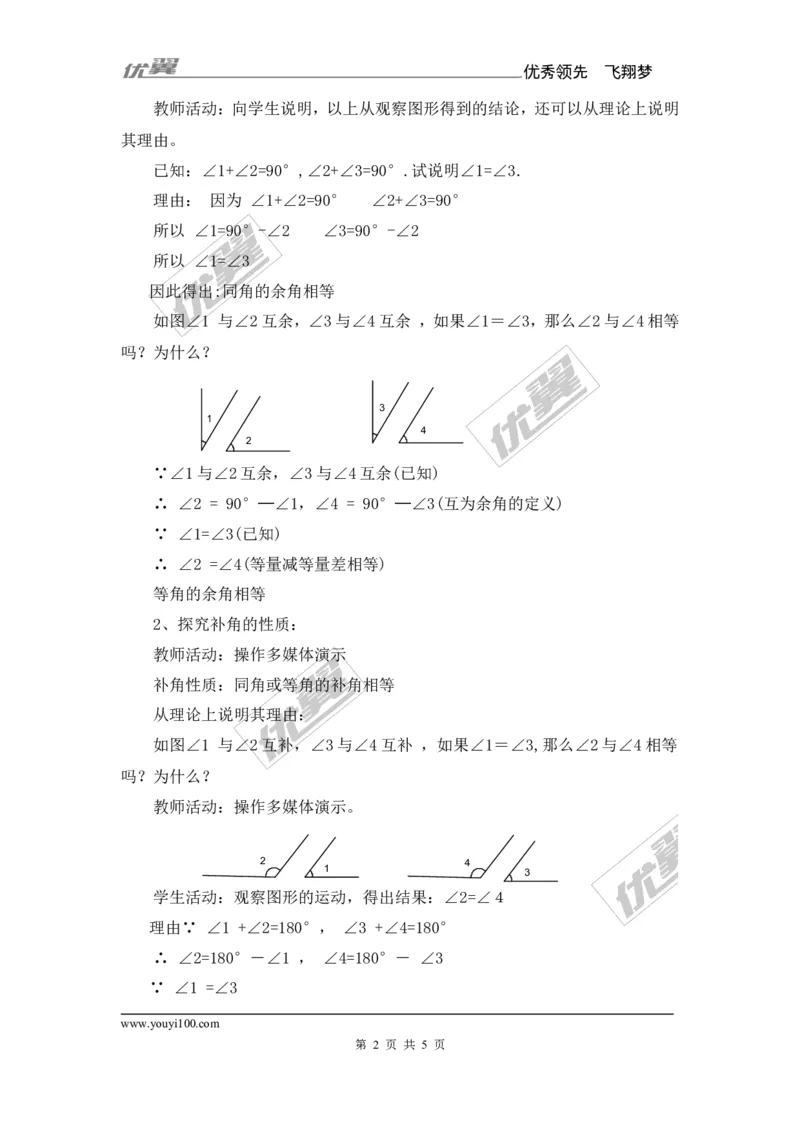 优翼 优秀领先 飞翔梦
教师活动：向学生说明，以上从观察图形得到的结论，还可以从理论上说明
其理由。
已知：∠1+∠2=90°,∠2+∠3=90°.试说明∠1=∠3.
理由： 因为 ∠1+∠2=90° ∠2+∠3=90°
所以 ∠1=90°-∠2 ∠3=90°-∠2
所以 ∠1=∠3
因此得出:同角的余角相等
如图∠1 与∠2互余，∠3与∠4互余 ，如果∠1＝∠3，那么∠2与∠4相等
吗？为什么？
1 2 3 4
∵∠1与∠2互余，∠3与∠4互余(已知)
∴ ∠2 = 90°—∠1，∠4 = 90°—∠3(互为余角的定义)
∵ ∠1=∠3(已知)
∴ ∠2 =∠4(等量减等量差相等)
等角的余角相等
2、探究补角的性质：
教师活动：操作多媒体演示
补角性质：同角或等角的补角相等
从理论上说明其理由：
如图∠1 与∠2互补，∠3与∠4互补 ，如果∠1＝∠3,那么∠2与∠4相等
吗？为什么？
教师活动：操作多媒体演示。
2 1 4 3
学生活动：观察图形的运动，得出结果：∠2=∠４
理由∵ ∠1 +∠2=180°， ∠3 +∠4=180°
∴ ∠2=180°－∠1 ， ∠4=180°－ ∠3
∵ ∠1 =∠3
www.youyi100.com
第 2 页 共 5 页